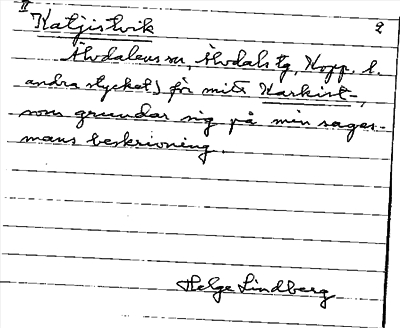 II
Katjistvik 2
Älvdalens sn, Älvdals tg, Kopp. l.
andra stycket) för mitt Karkist-,
som grundar sig på min sages-
mans beskrivning.
Helge Lindberg